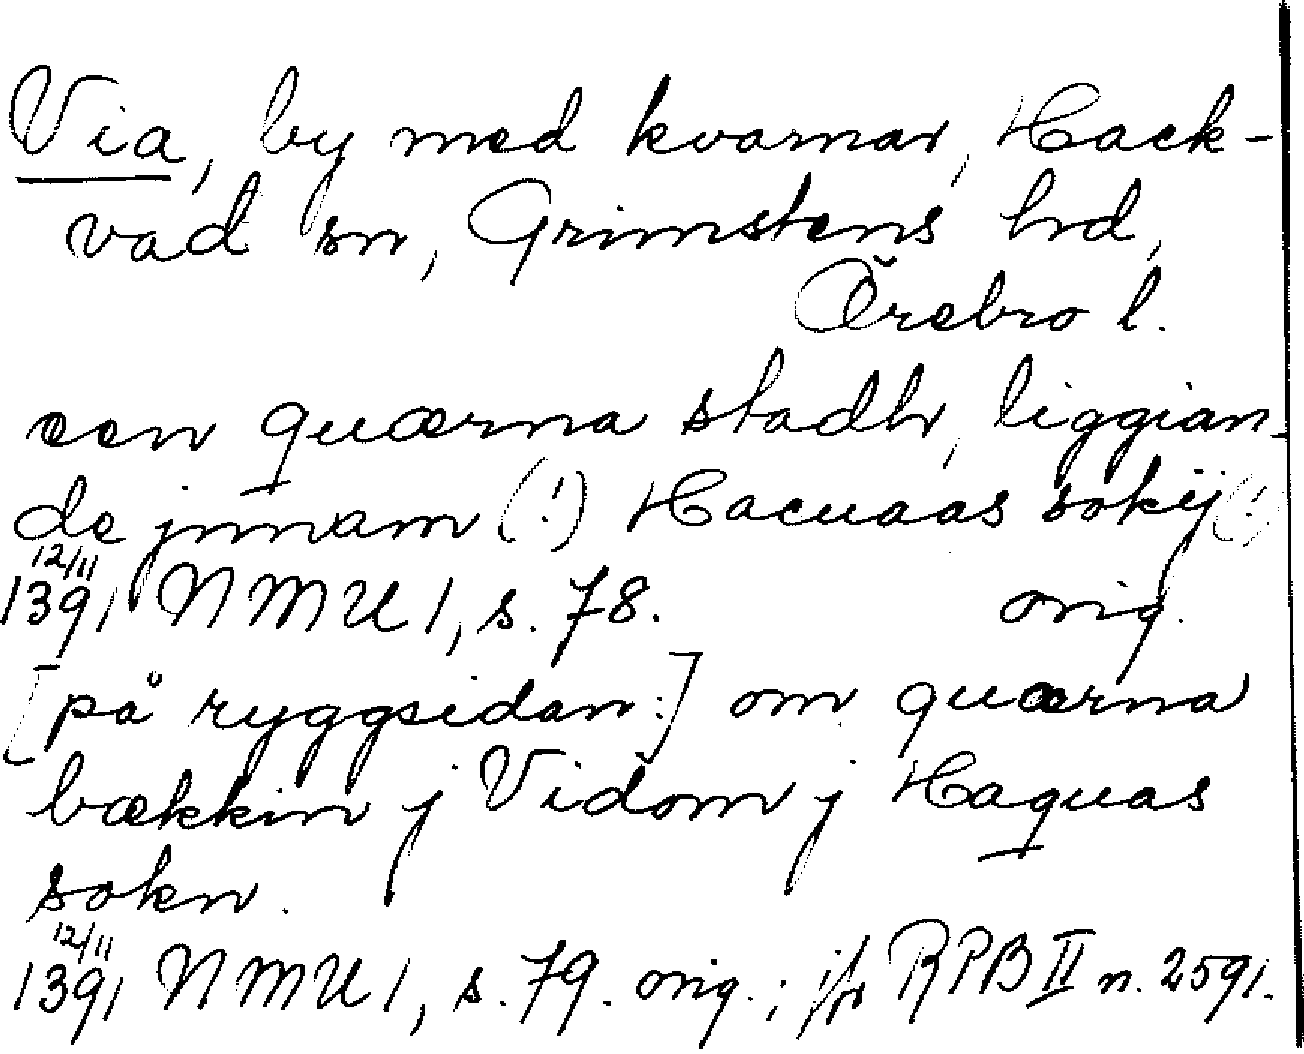 Via, by med kvarnar, Hack-
vad sn, Grimstens hd,
Örebro l.
een quærna stadh, liggian-
de jnnam (!) Hacuaas sokij (!)
12/11
1391 NMU 1, s. 78. orig.
[på ryggsidan:] om quærna
bækkin j Vidom j Haquas
sokn.
12/11
1391 NMU 1, s. 79. orig.; jfr RPB II n. 2591.